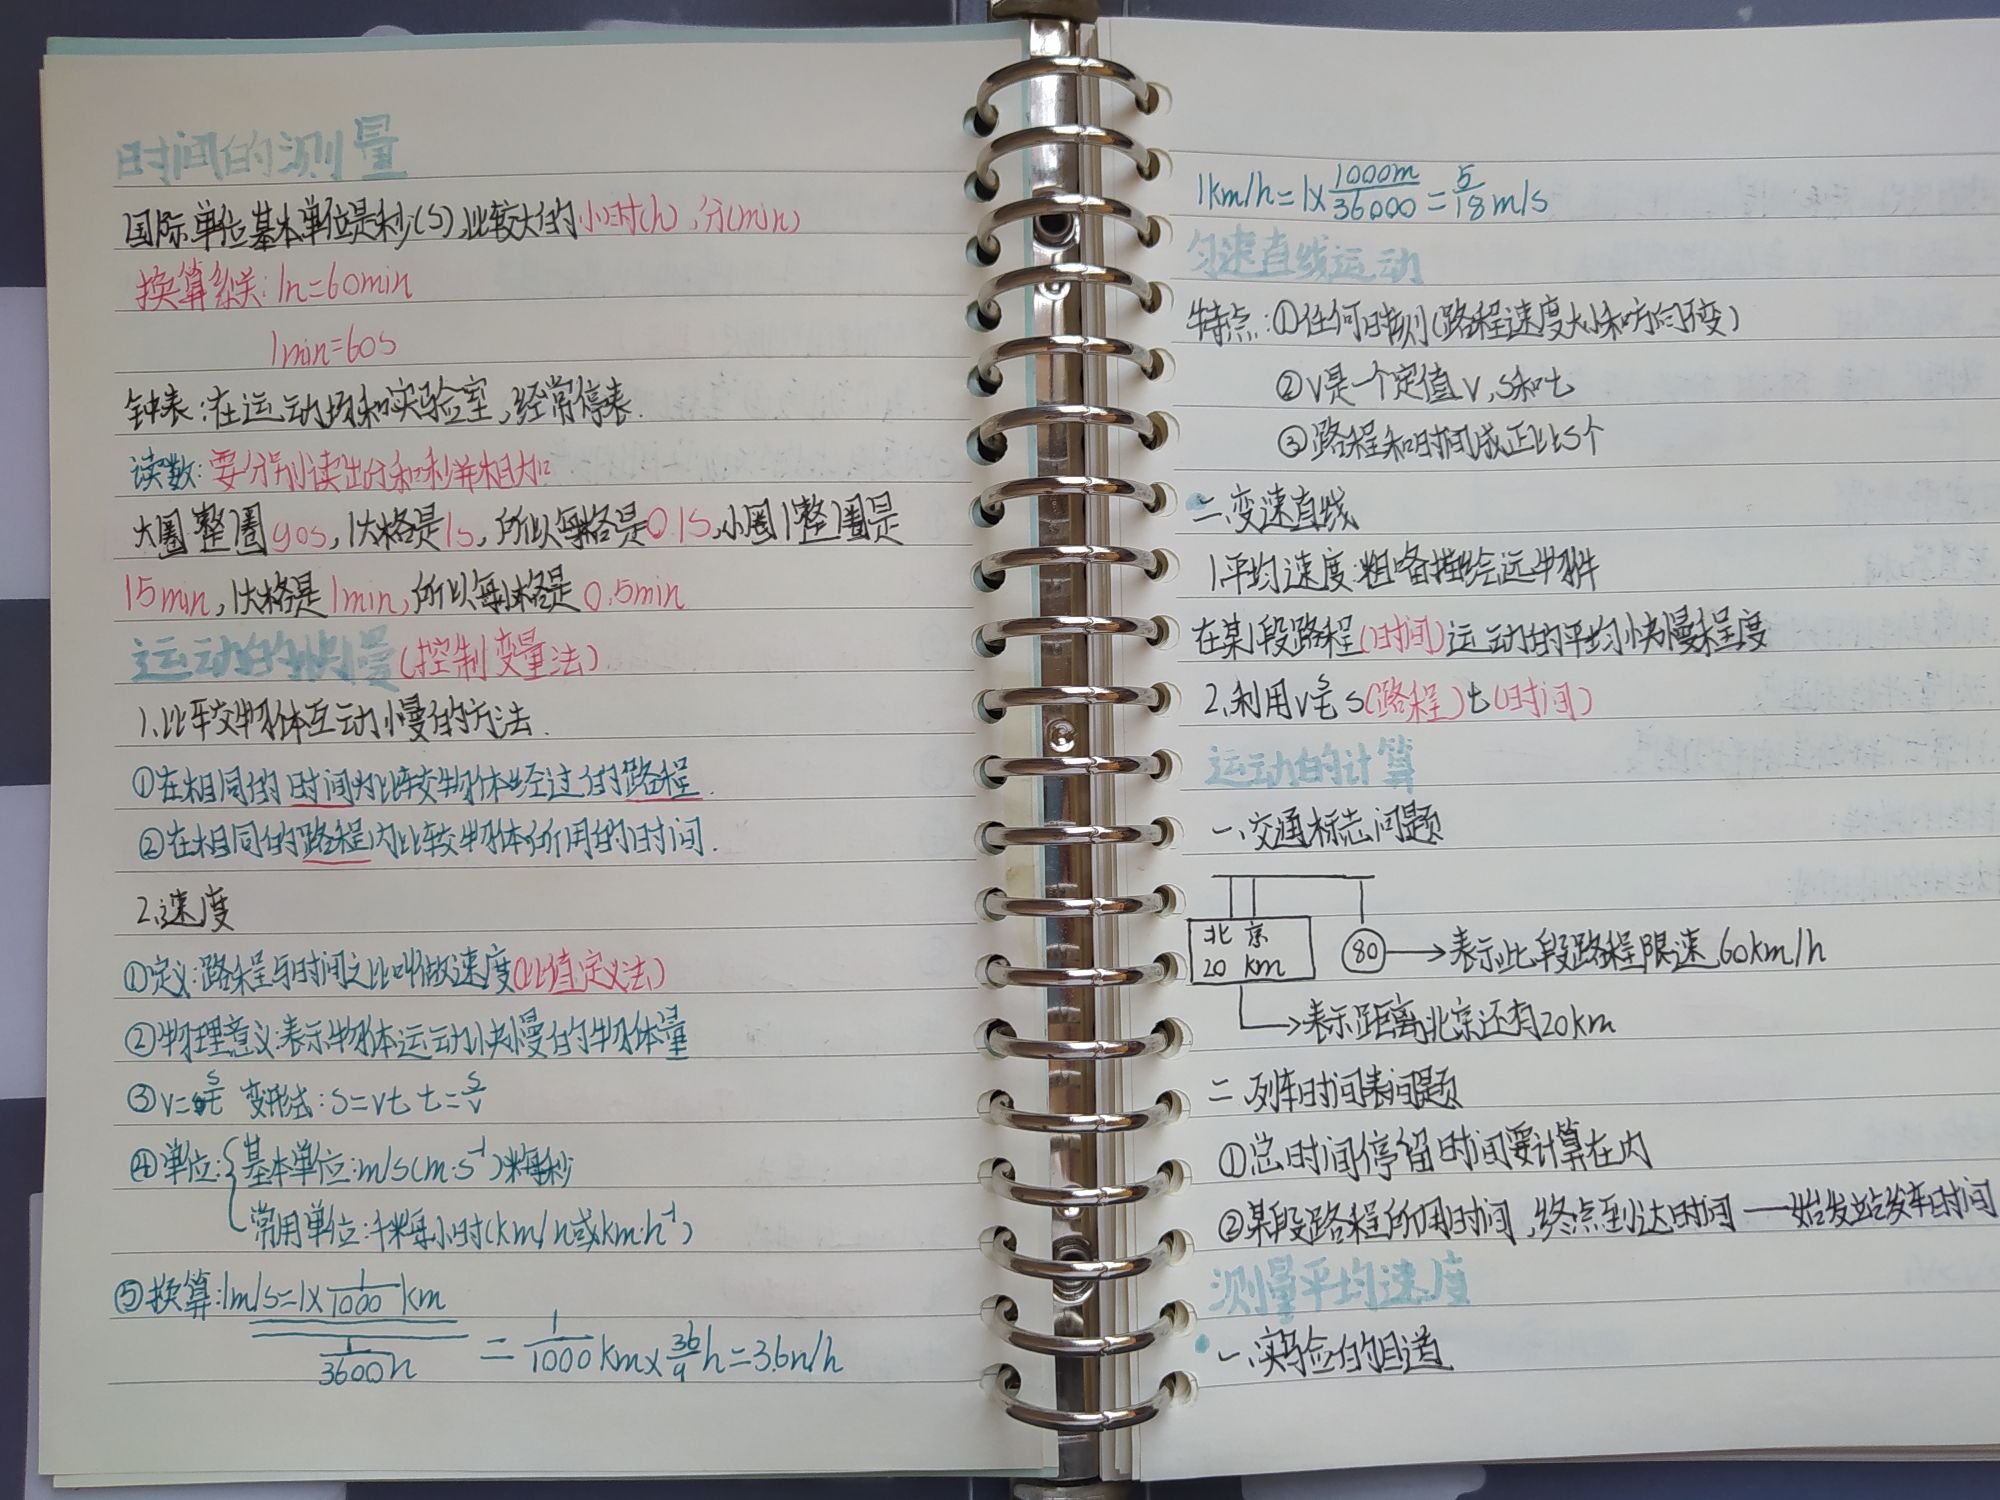 时间的测量
国际单位基本单位是秒(s),比较大的小时(h),分(min)
换算系关:1h=60min
1min=60s
钟表:在运动场和实验室,经常停表.
读数:要分别读出分和秒并相加
大圈整1圈90s,1大格是1s,所以每格是0.1s,小圈1整1圈是
15min,1大格是1min,所以每小格是0.5min
运动的快慢(控制变量法)
1.比较物体互动慢的方法.
①在相同的时间内比较物体经过的路程.
②在相同的路程内比较物体所用的时间.
2.速度
①定义:路程与时间之比叫做速度(比值定义法)
②物理意义:表示物体运动快慢的物体量
③v=s/t 变形式:s=vt t=s/v
④单位:{基本单位:m/s(m·s⁻¹)米每秒
常用单位:千米每小时(km/h或km·h⁻¹)
⑤换算:1m/s=1×1/1000km
1/3600h =1/1000km×36/9h=3.6n/h
1km/h=1×1000m/36000=5/18m/s
匀速直线运动
特点:①任何时刻(路程速度大小和方向不变)
②v是一个定值v,s和t
③路程和时间成正比s个
二.变速直线
1.平均速度:粗略描绘远物件
在某1段路程(时间)运动的平均快慢程度
2.利用v=s/t s(路程)t(时间)
运动的计算
一.交通标志问题
北京
20 km
80→表示此段路程限速60km/h
→表示距离北京还有20km
二.列车时间表问题
①总时间停留时间要计算在内
②某段路程所用时间,终点到达时间——始发站发车时间
测量平均速度
一.实验的目道